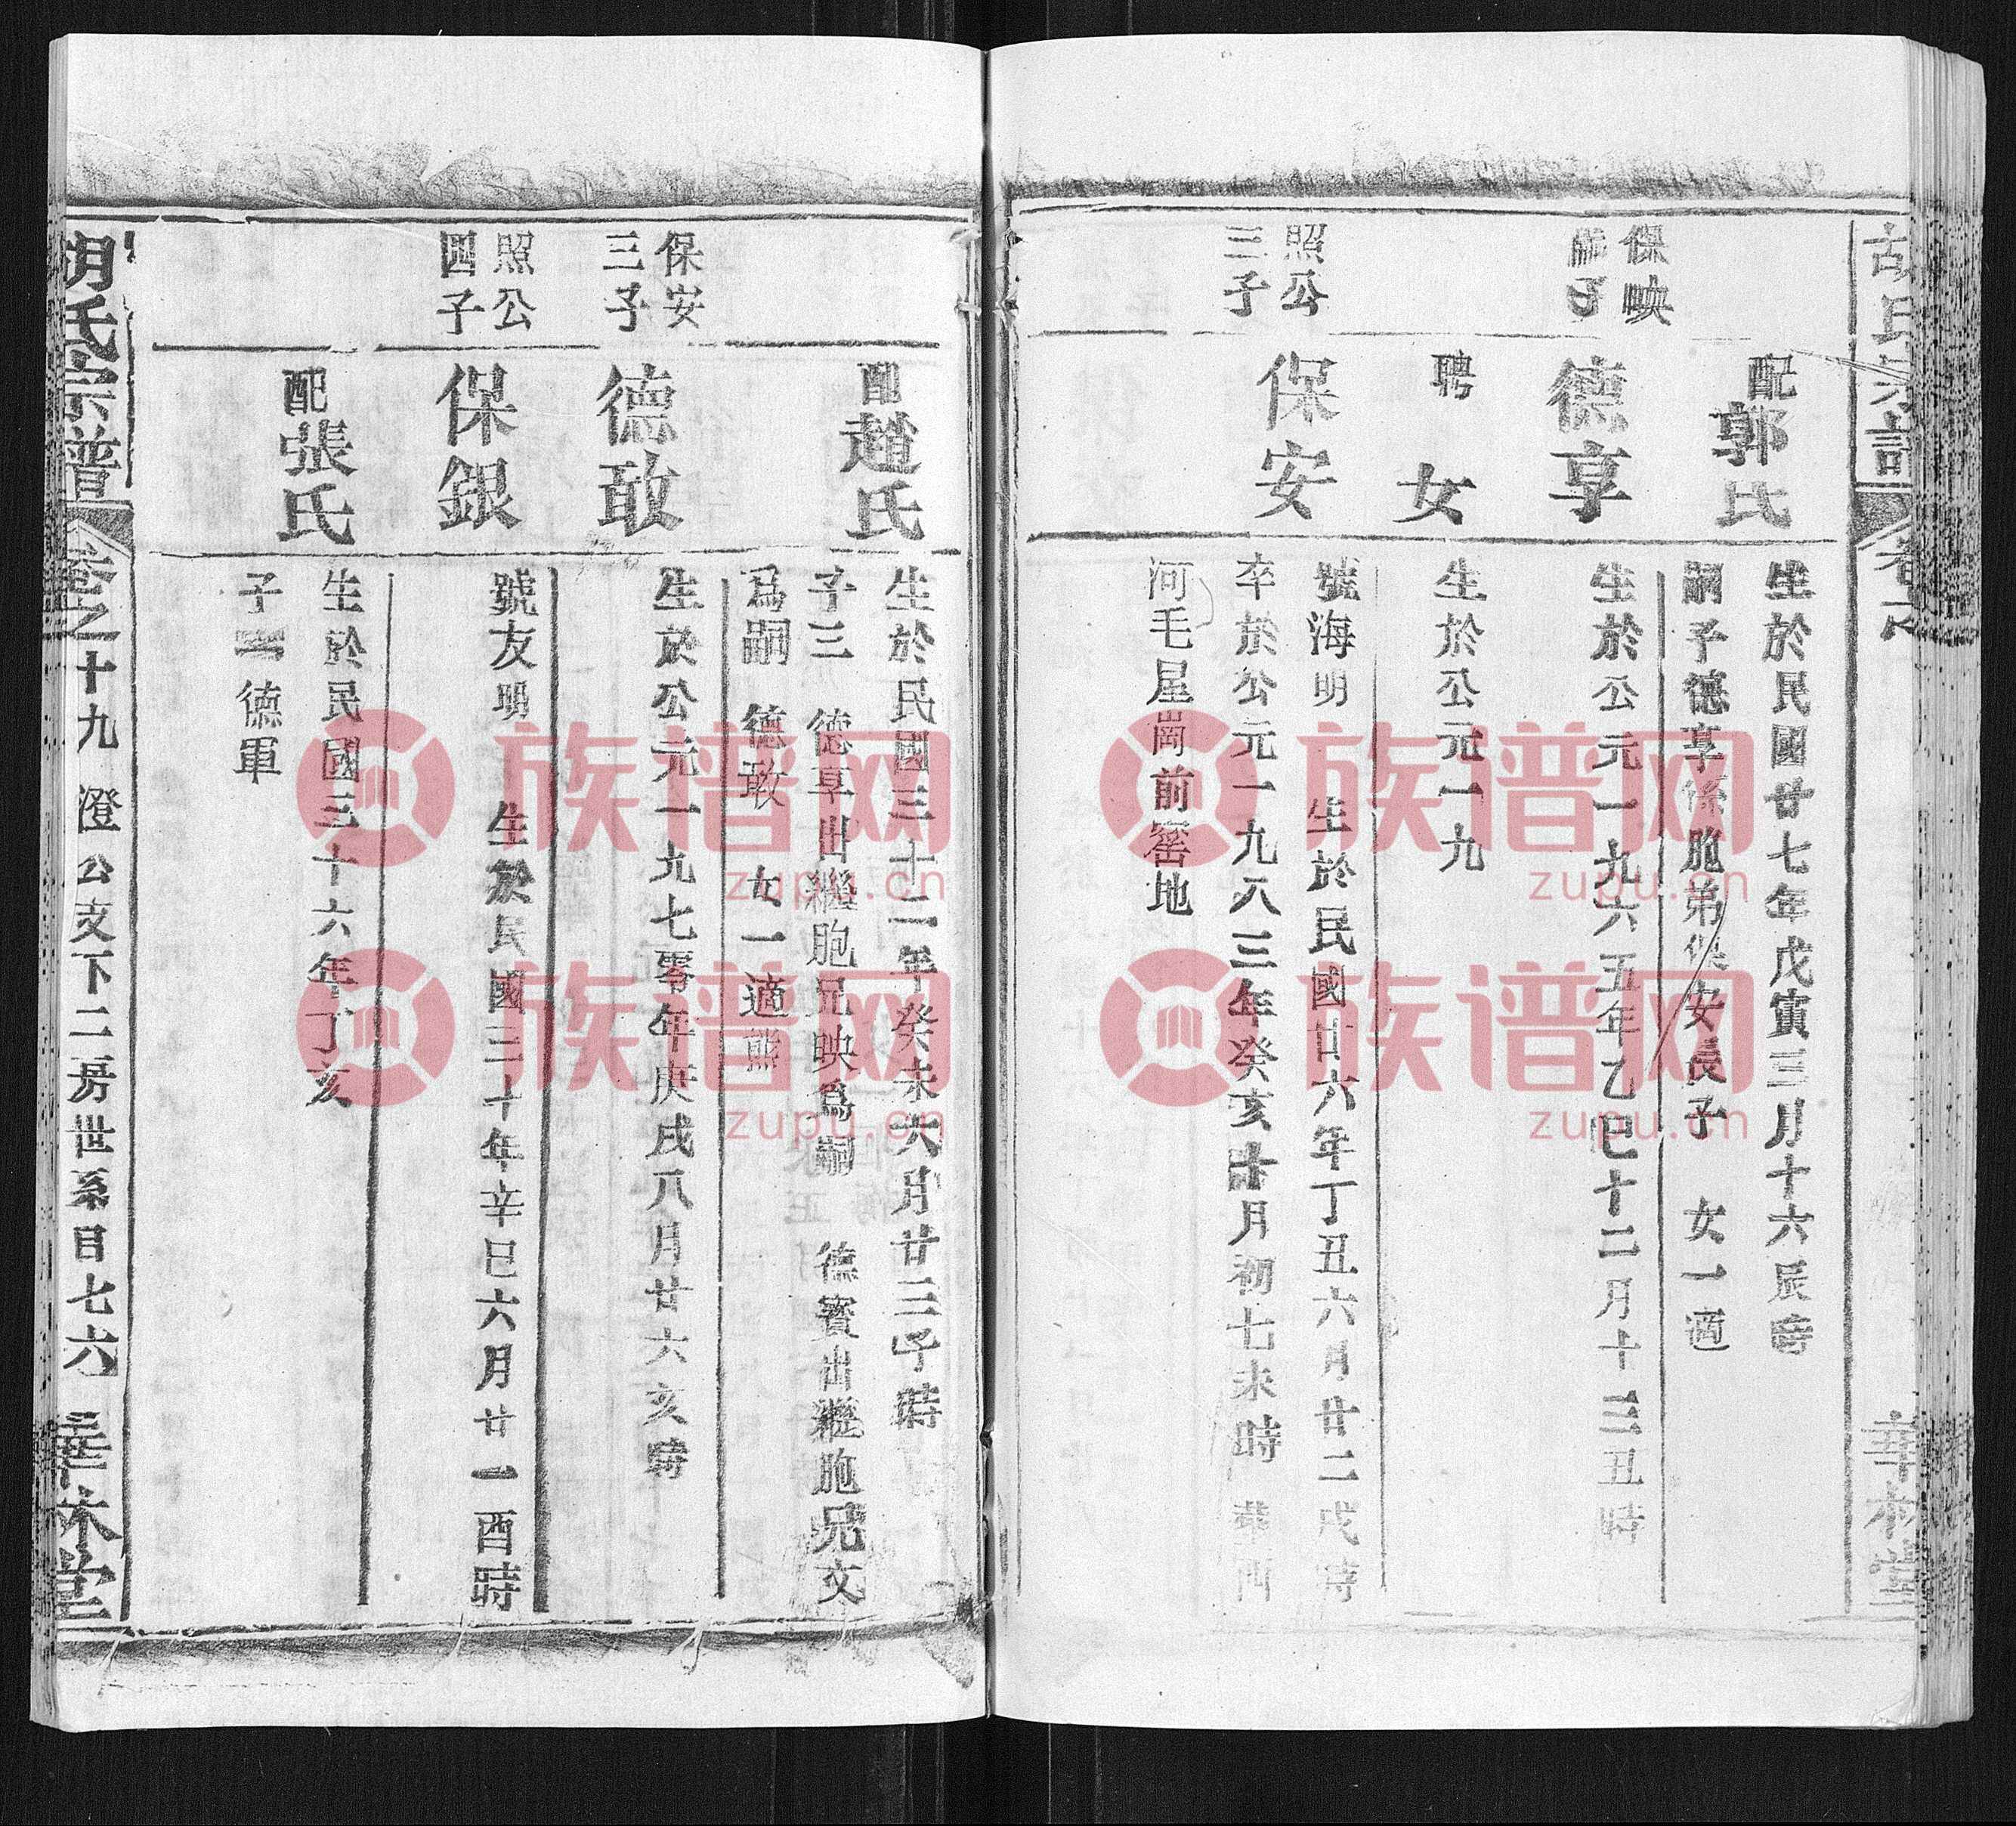 配郭氏
生於民國廿七年戊寅三月十六辰時
嗣子德享係胞弟保安長子 女一適
保映
嗣子
德享
生於公元一九六五年乙巳十二月十三丑時
聘 女
生於公元一九
照公
三子
保安
號海明 生於民國廿六年丁丑六月廿二戌時
卒於公元一九八三年癸亥十月初七未時 葬西
河毛屋崗前窰地
華林堂
配趙氏
生於民國三十二年癸未六月廿三子時
子三 德享出繼胞兄映爲嗣 德賓出繼胞兄文
爲嗣 德敢 女一適熊
保安
三子
德敢
生於公元一九七零年庚戌八月廿六亥時
照公
四子
保銀
號友明 生於民國三十年辛巳六月廿一酉時
配張氏
生於民國三十六年丁亥
子一 德軍
胡氏宗譜
卷之十九 澄公支下二房世系目七六
華林堂
族谱网
zupu.cn
族谱网
zupu.cn
族谱网
zupu.cn
族谱网
zupu.cn